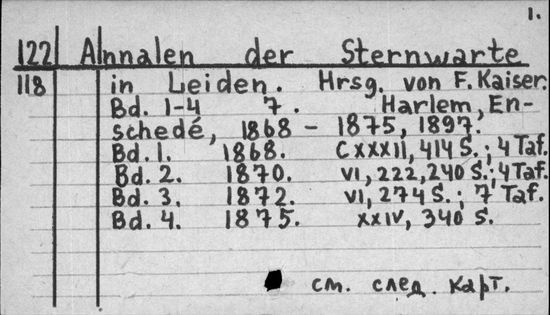 1.
122 Annalen der Sternwarte
118 in Leiden. Hrsg. von F. Kaiser.
Bd. 1-4 7. Harlem, En-
schedé, 1868 - 1875, 1897.
Bd. 1. 1868. CXXXII, 414 S.; 4 Taf.
Bd. 2. 1870. VI, 222, 240 S.; 4 Taf.
Bd. 3. 1872. VI, 274 S.; 7 Taf.
Bd. 4. 1875. XXIV, 340 S.
см. след. карт.